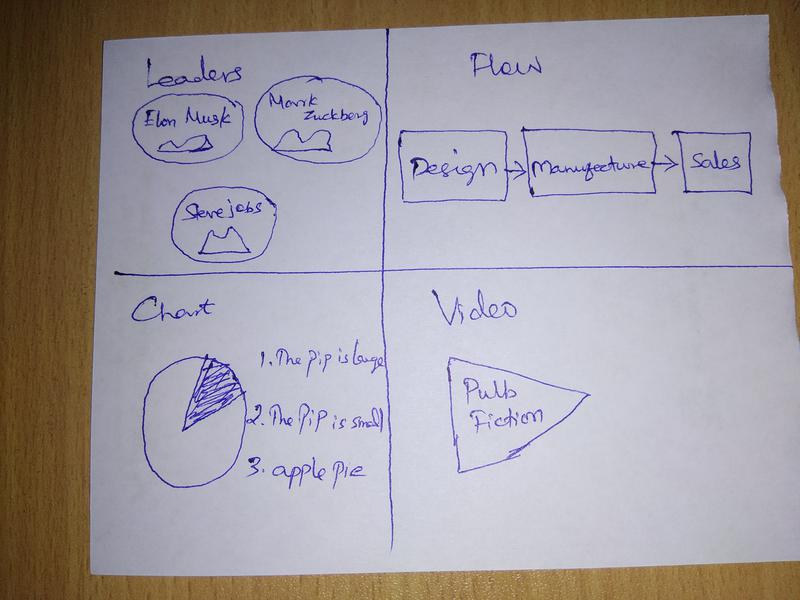 Leaders
Elon Musk
Mark
Zuckberg
Steve jobs
Flow
Design
Manufecture
Sales
Chart
1. The pip is large
2. The pip is small
3. apple pie
Video
Pulb
Fiction